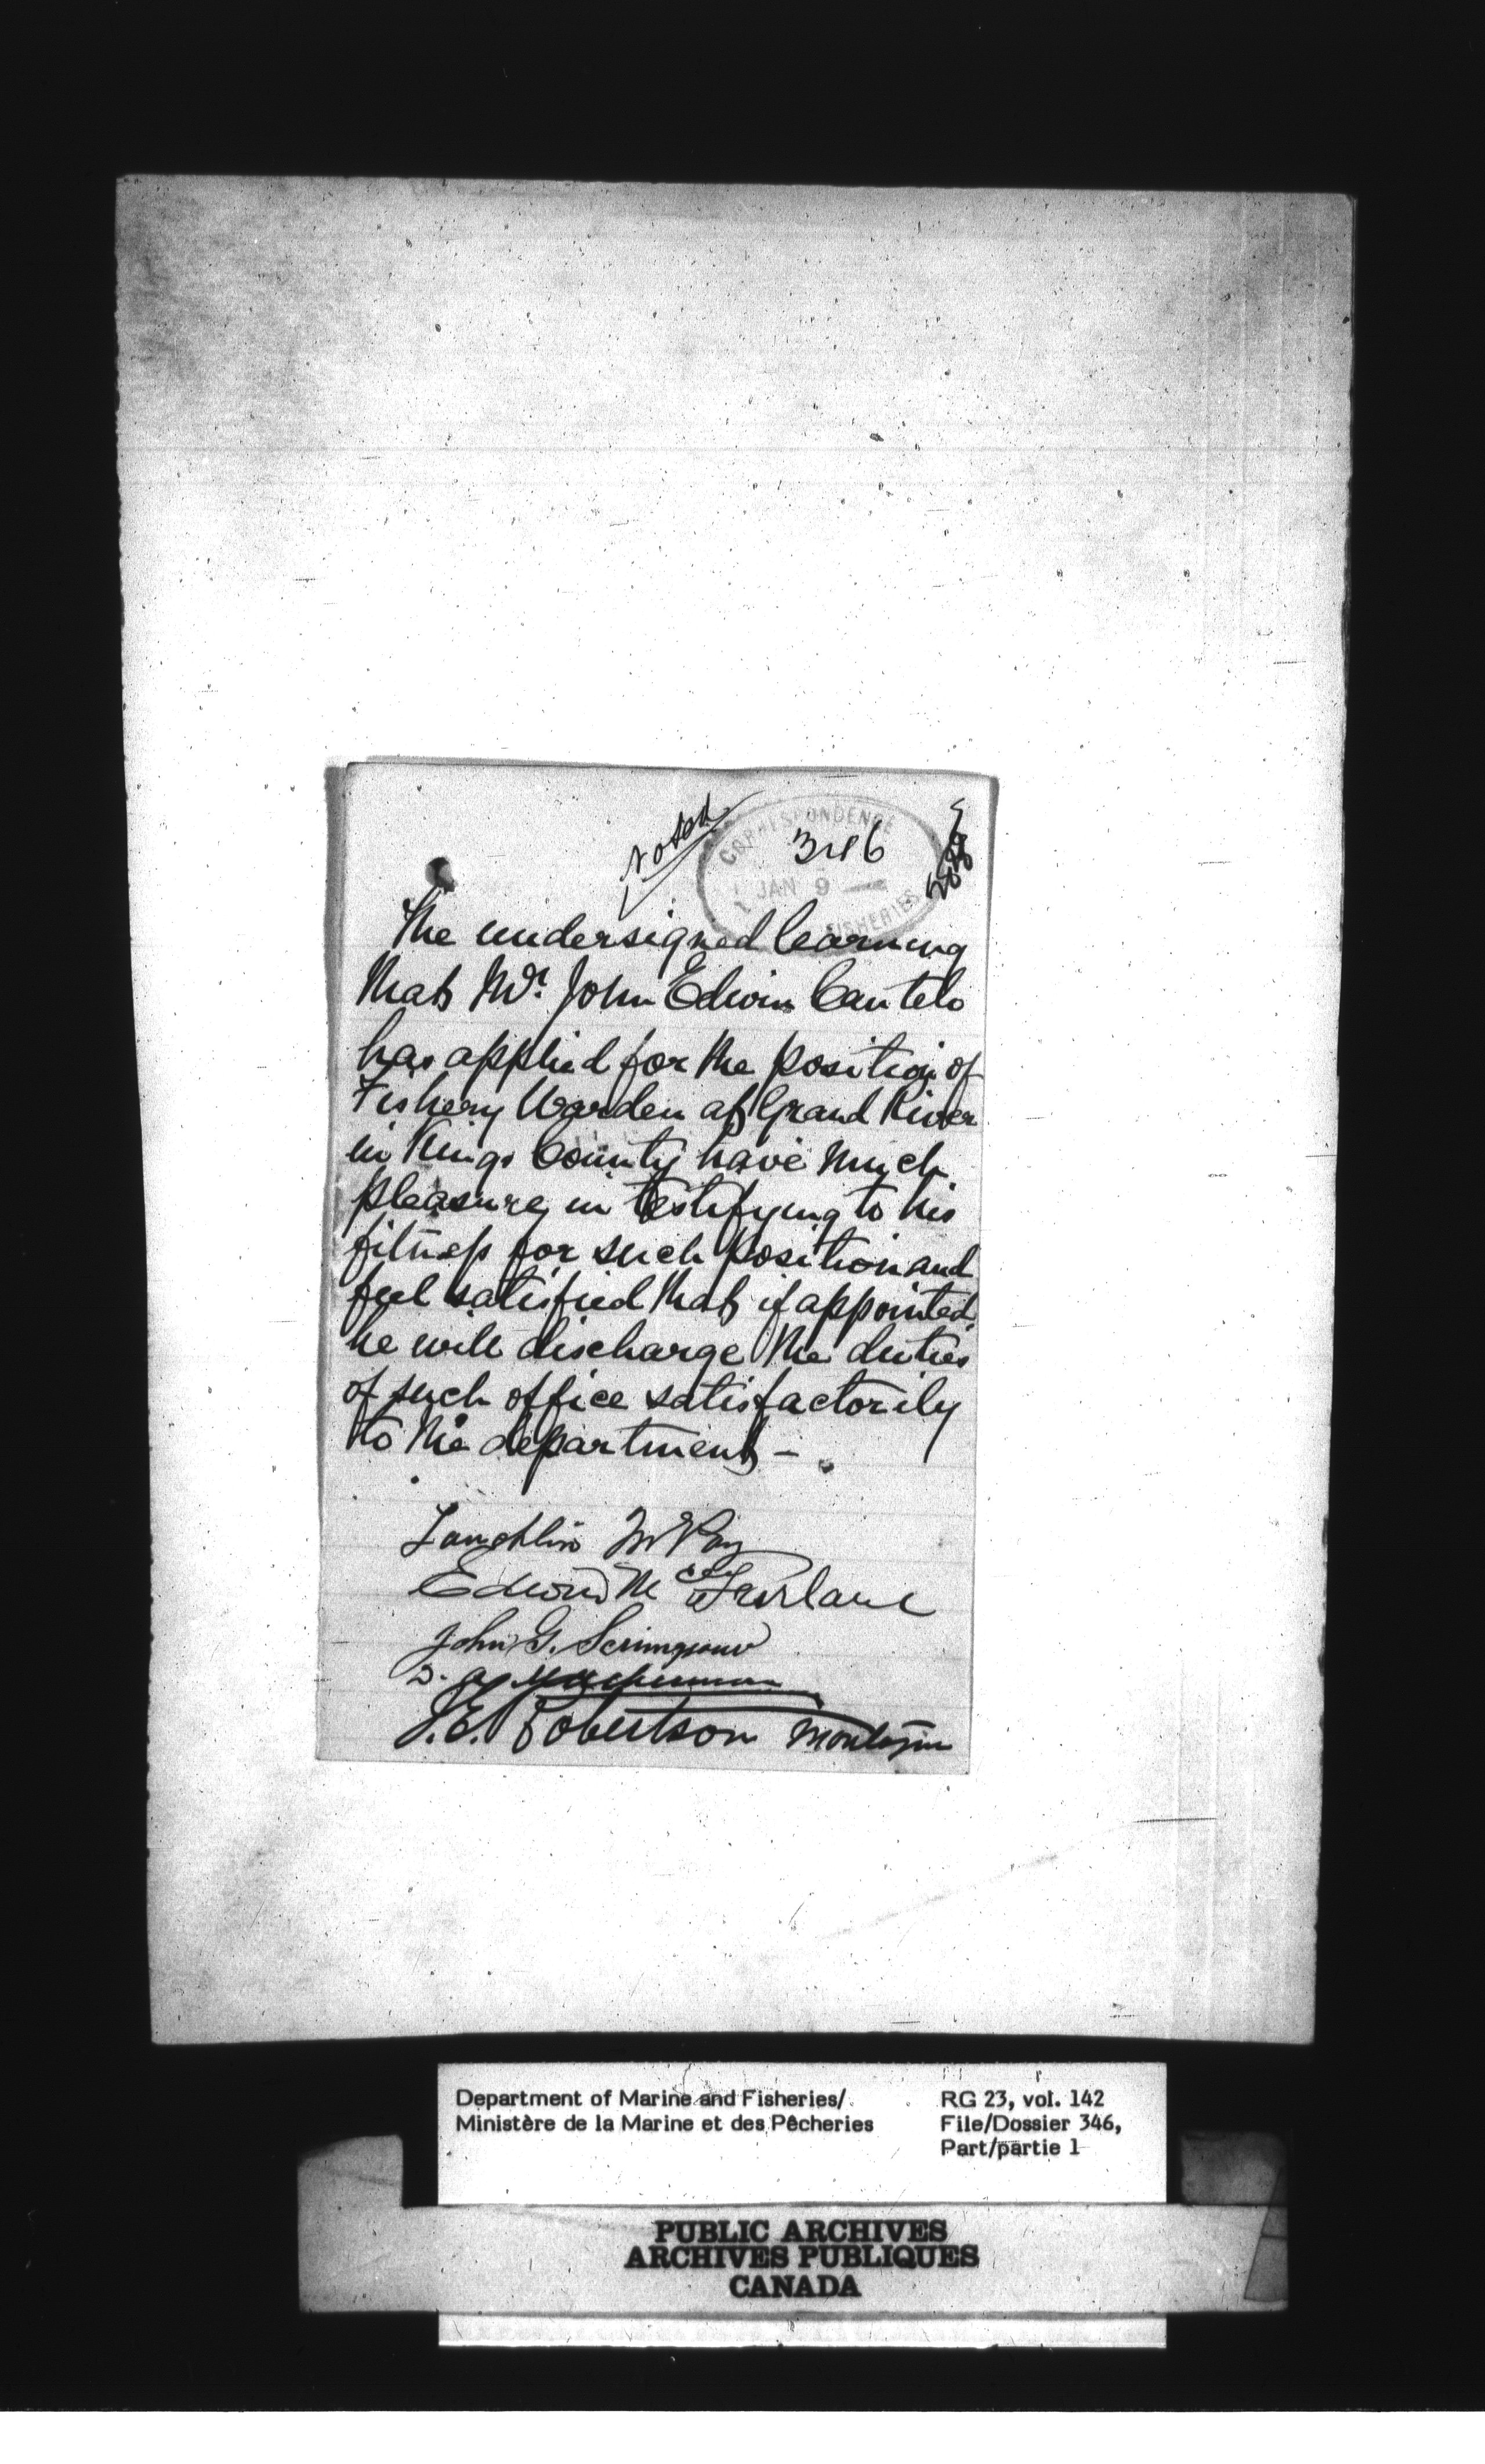 Noted
CORRESPONDENCE
346
JAN 9
FISHERIES
The undersigned learning
that Mr. John Edwin Cantelo
has applied for the position of
Fishery Warden at Grand River
in Kings County have much
pleasure in testifying to his
fitness for such position and
feel satisfied that if appointed
he will discharge the duties
of such office satisfactorily
to the department -
Lauchlin McKay
Edward McFarlane
John G. Scrimgeour
D. A.
J. E. Robertson Montague
Department of Marine and Fisheries/
Ministère de la Marine et des Pêcheries
RG 23, vol. 142
File/Dossier 346,
Part/partie 1
PUBLIC ARCHIVES
ARCHIVES PUBLIQUES
CANADA